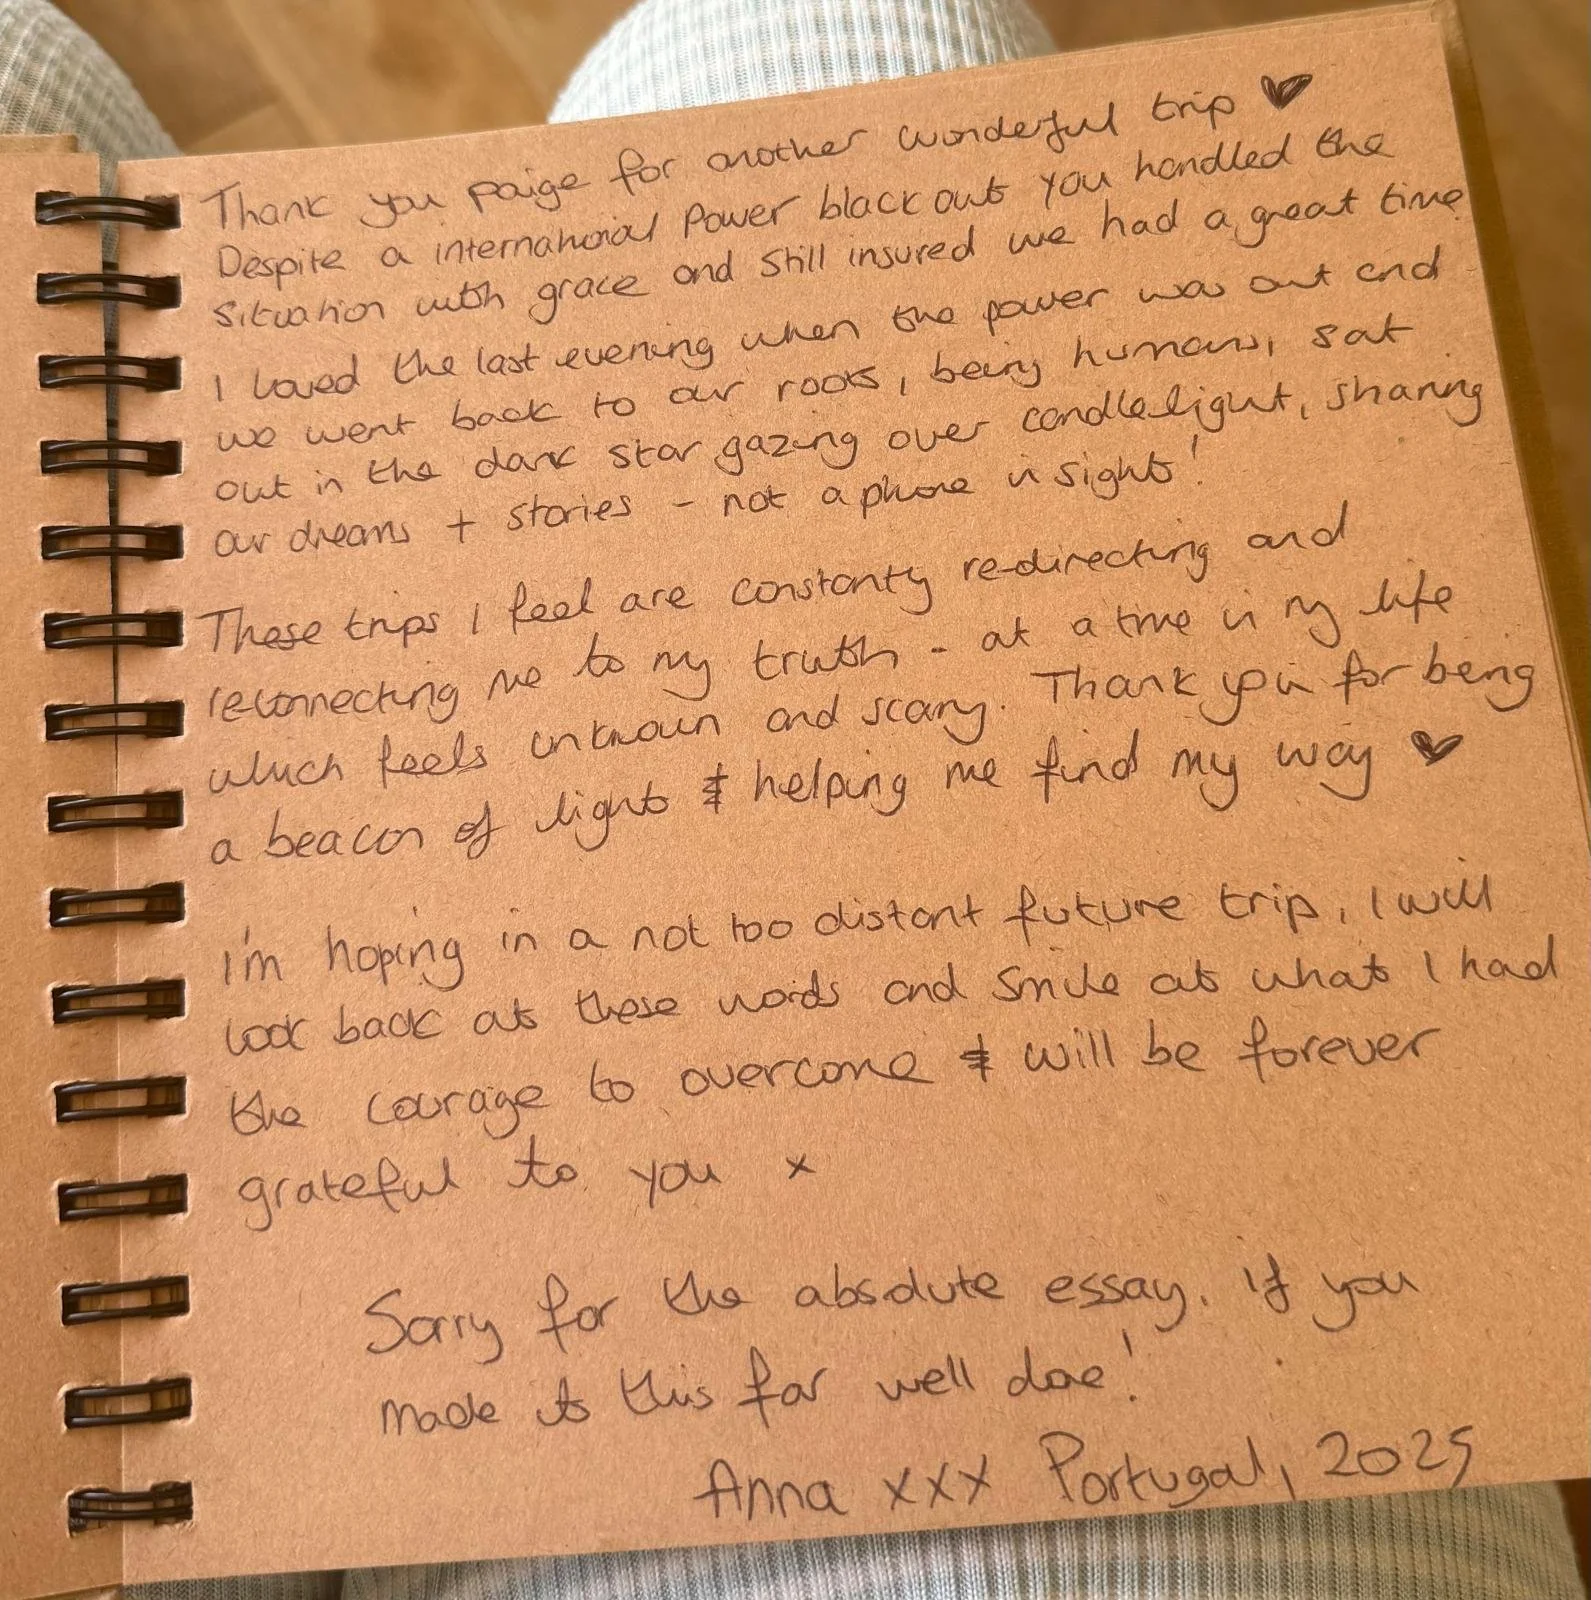 Thank you paige for another wonderful trip ♥
Despite a international Power blackout you handled the
situation with grace and still insured we had a great time
I loved the last evening when the power was out and
we went back to our roots, being humans, sat
out in the dark star gazing over candlelight, sharing
our dreams + stories - not a phone in sight!
These trips I feel are constanty re-directing and
reconnecting me to my truth - at a time in my life
which feels unknown and scary. Thank you for being
a beacon of light & helping me find my way ♥
I'm hoping in a not too distant future trip, I will
look back at these words and smile at what I had
the courage to overcome & will be forever
grateful to you x
Sorry for the absolute essay. If you
made it this far well done!
Anna xxx Portugal, 2025